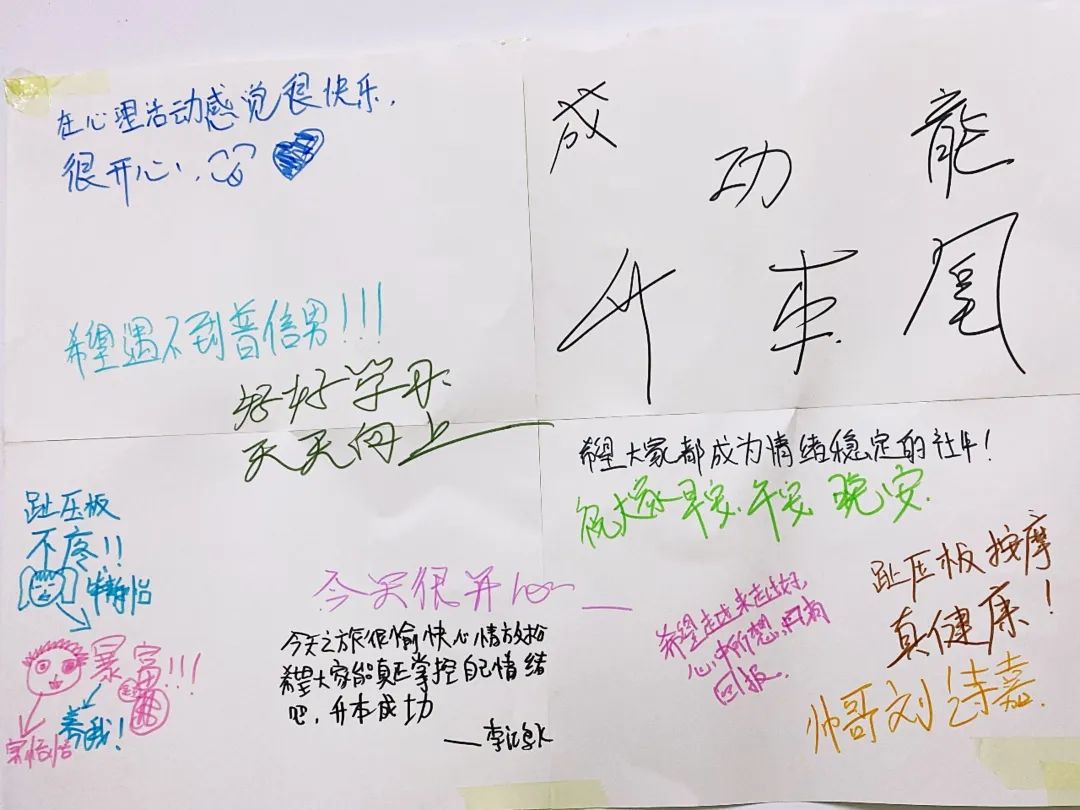 在心理活动感觉很快乐,
很开心
成功
升本
希望遇不到普信男!!!
好好学习
天天向上
希望大家都成为情绪稳定的社牛!
祝大家早安.午安.晚安.
趾压板
不疼!!
暴富!!!
养我!
今天很开心
今天之旅很愉快心情放松
希望大家能真正掌控自己情绪
吧,升本成功
希望越来越好,
心中所想,
回报.
趾压板按摩
真健康!
帅哥刘